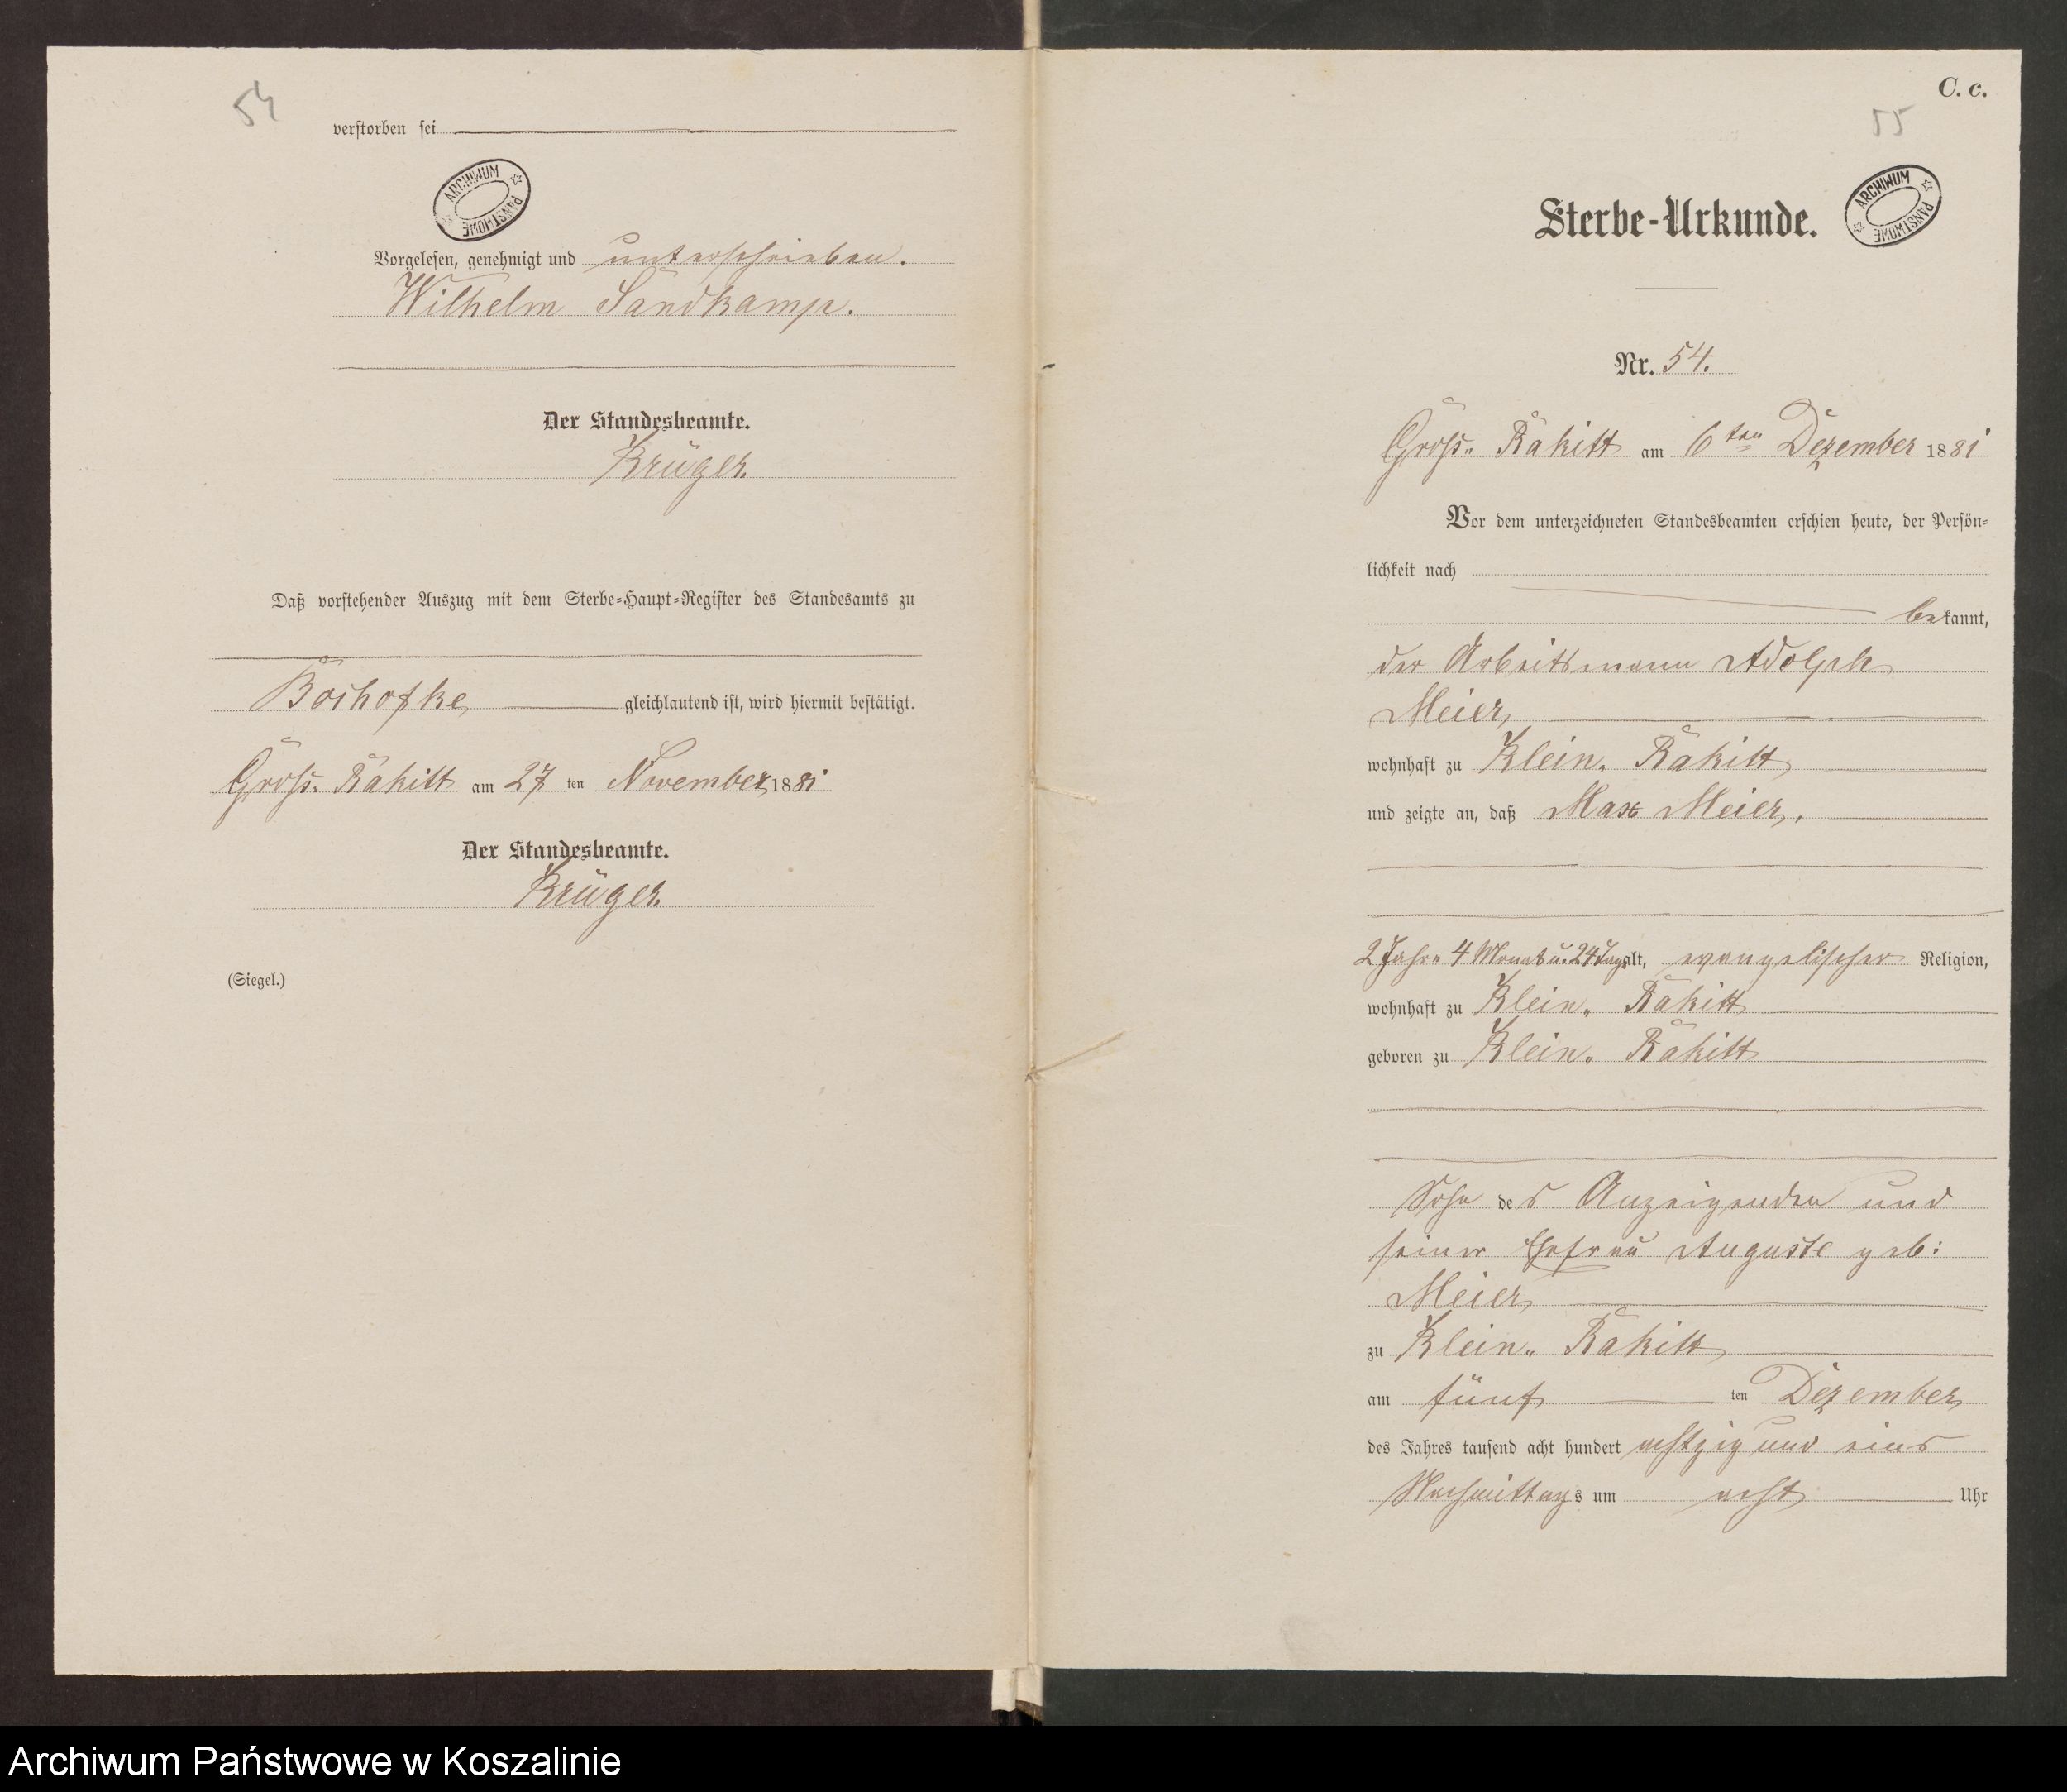 54
verstorben sei
ARCHIWUM PAŃSTWOWE
Vorgelesen, genehmigt und unterschrieben.
Wilhelm Sandkamp.
Der Standesbeamte.
Krüger.
Daß vorstehender Auszug mit dem Sterbe-Haupt-Register des Standesamts zu
gleichlautend ist, wird hiermit bestätigt.
Gross. Rakitt am 27 ten November 1881
Der Standesbeamte.
Krüger.
(Siegel.)
C. c.
55
Sterbe-Urkunde.
ARCHIWUM PAŃSTWOWE
Nr. 54.
Gross. Rakitt am 6 ten Dezember 1881
Vor dem unterzeichneten Standesbeamten erschien heute, der Persön-
lichkeit nach
bekannt,
der Arbeitsmann Adolph
Meier,
wohnhaft zu Klein. Rakitt
und zeigte an, daß Max Meier,
2 Jahre 4 Monat u. 24 Tage alt, evangelischer Religion,
wohnhaft zu Klein. Rakitt
geboren zu Klein. Rakitt
Sohn des Anzeigenden und
seiner Ehefrau Auguste geb:
Meier,
zu Klein. Rakitt
am fünf ten Dezember
des Jahres tausend acht hundert achtzig und eins
Nachmittags um acht Uhr
Archiwum Państwowe w Koszalinie